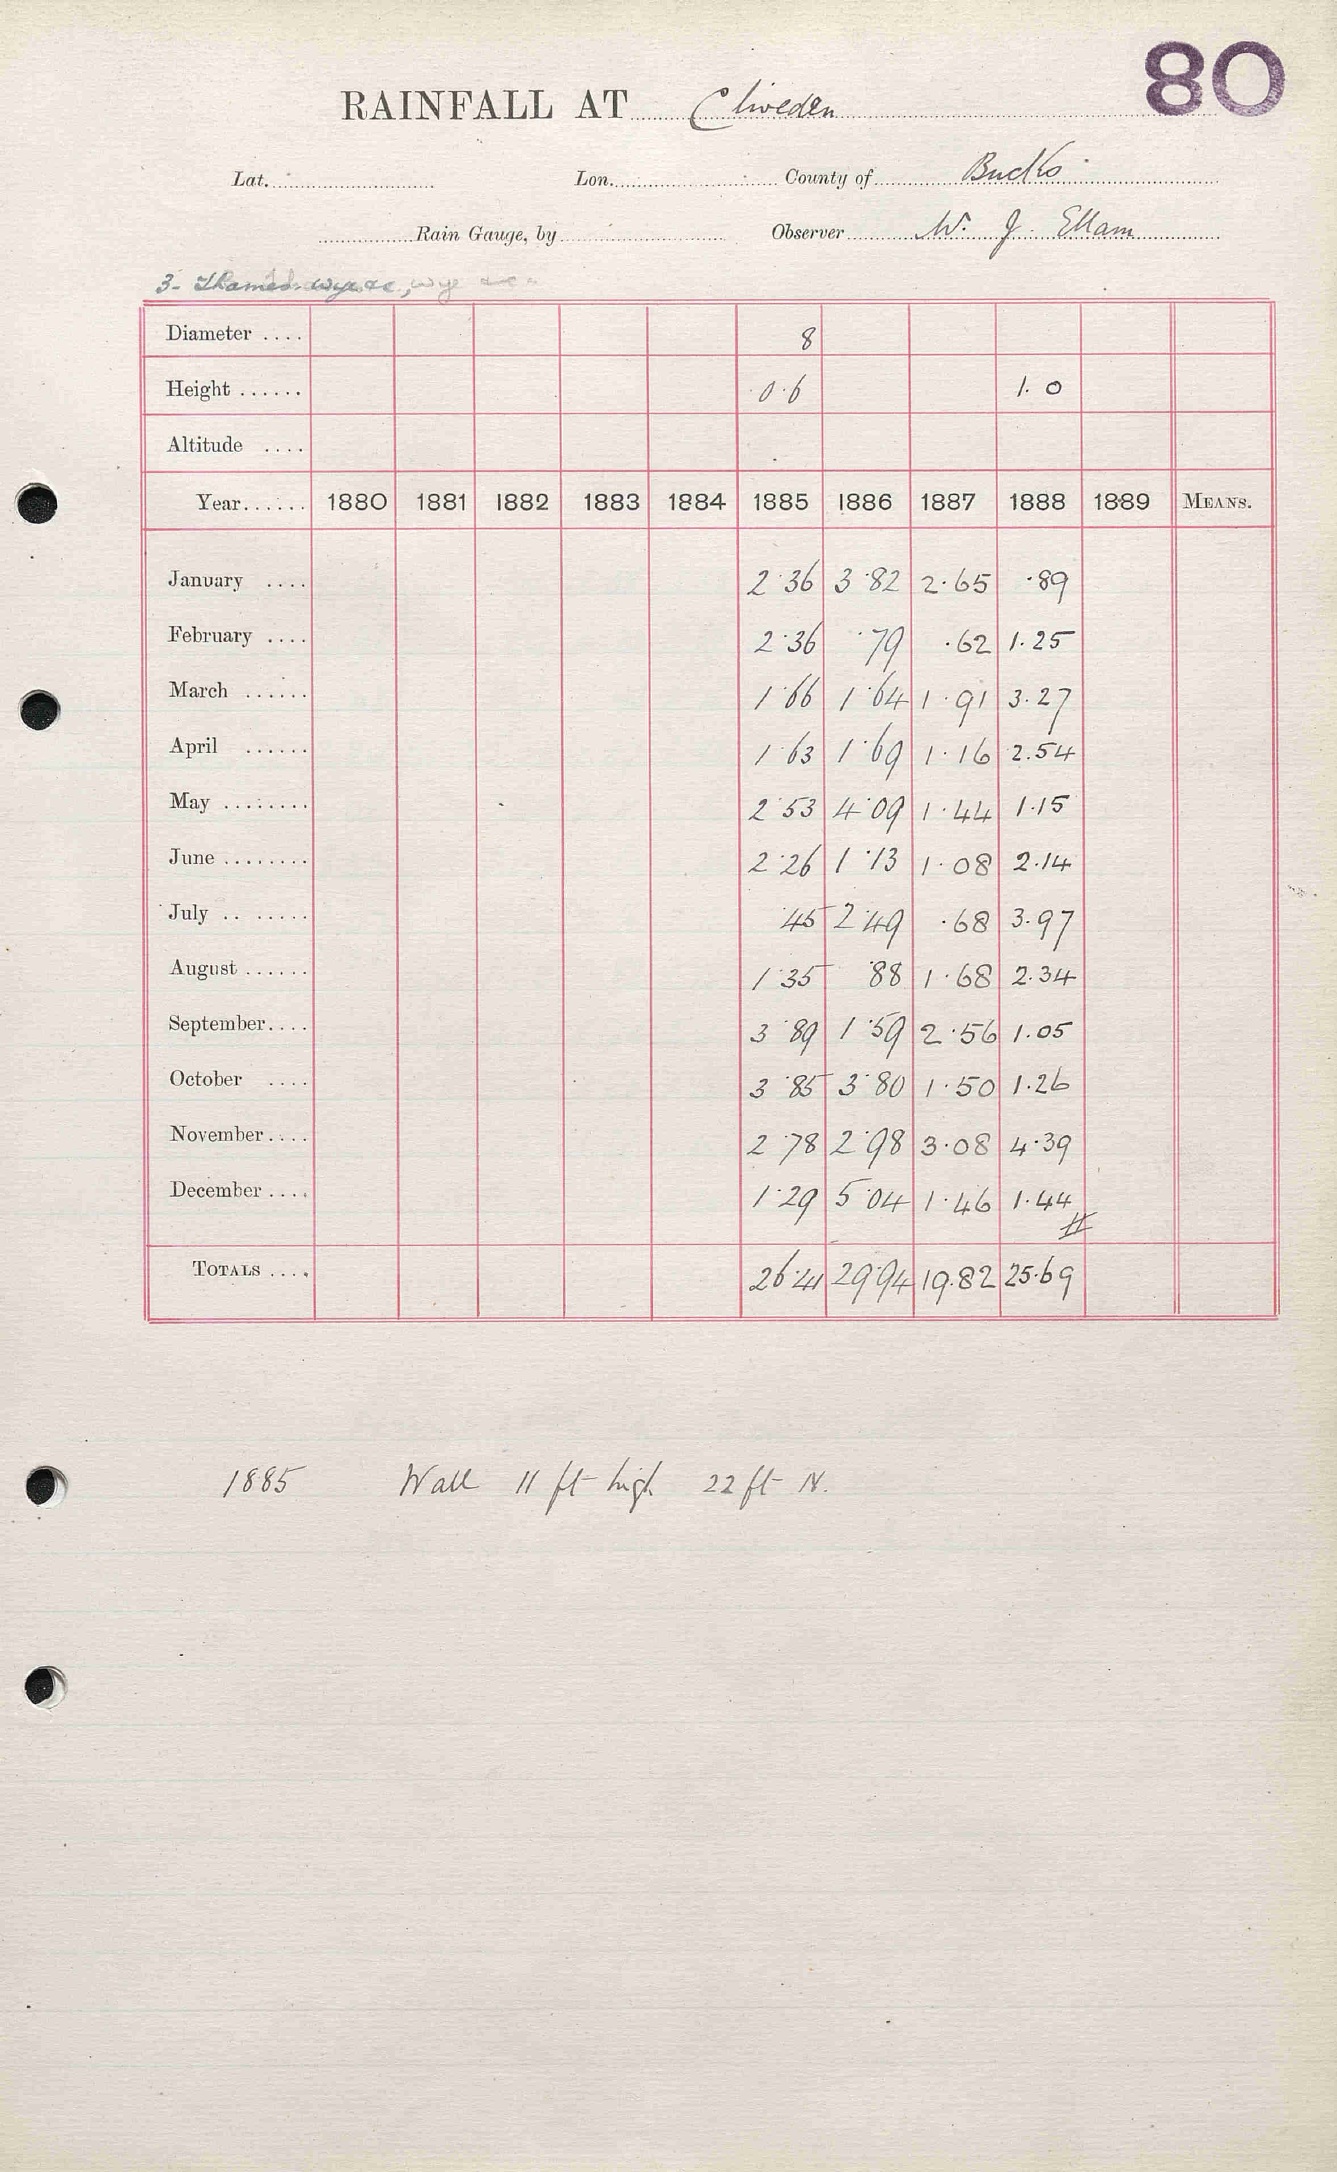 80
RAINFALL AT Cliveden
Lat. Lon. County of Bucks
Rain Gauge, by Observer W. J. Ellam
3- Thames. Wye &c., Wye &c.
Diameter .... 8
Height ...... 0.6 1.0
Altitude ....
Year...... 1880 1881 1882 1883 1884 1885 1886 1887 1888 1889 MEANS.
January .... 2.36 3.82 2.65 .89
February .... 2.36 .79 .62 1.25
March ...... 1.66 1.64 1.91 3.27
April ...... 1.63 1.69 1.16 2.54
May ........ 2.53 4.09 1.44 1.15
June ........ 2.26 1.13 1.08 2.14
July .. ..... .45 2.49 .68 3.97
August ...... 1.35 .88 1.68 2.34
September.... 3.89 1.59 2.56 1.05
October .... 3.85 3.80 1.50 1.26
November.... 2.78 2.98 3.08 4.39
December .... 1.29 5.04 1.46 1.44
TOTALS .... 26.41 29.94 19.82 25.69
1885 Wall 11 ft high 22 ft N.